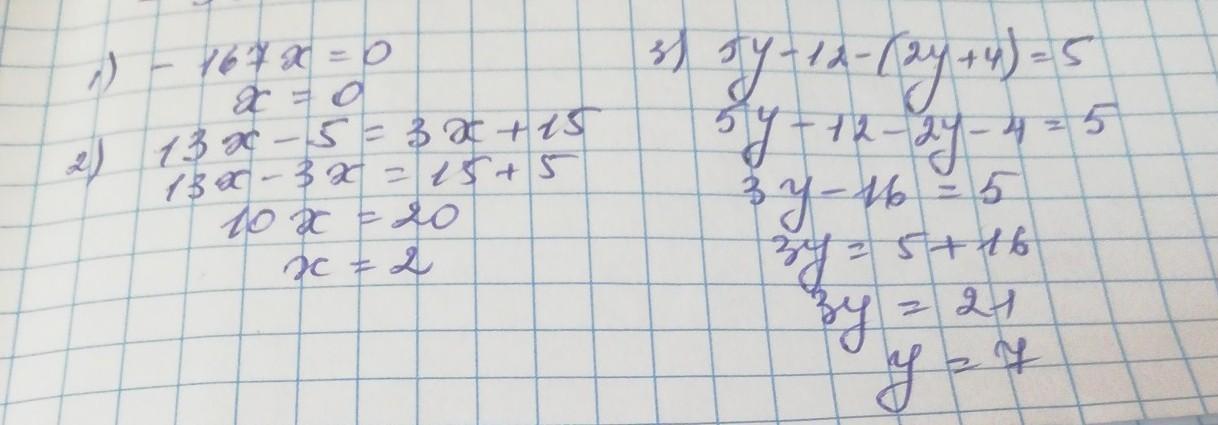 1) - 167x = 0
x = 0
2) 13x - 5 = 3x + 15
13x - 3x = 15 + 5
10x = 20
x = 2
3) 5y - 12 - (2y + 4) = 5
5y - 12 - 2y - 4 = 5
3y - 16 = 5
3y = 5 + 16
3y = 21
y = 7